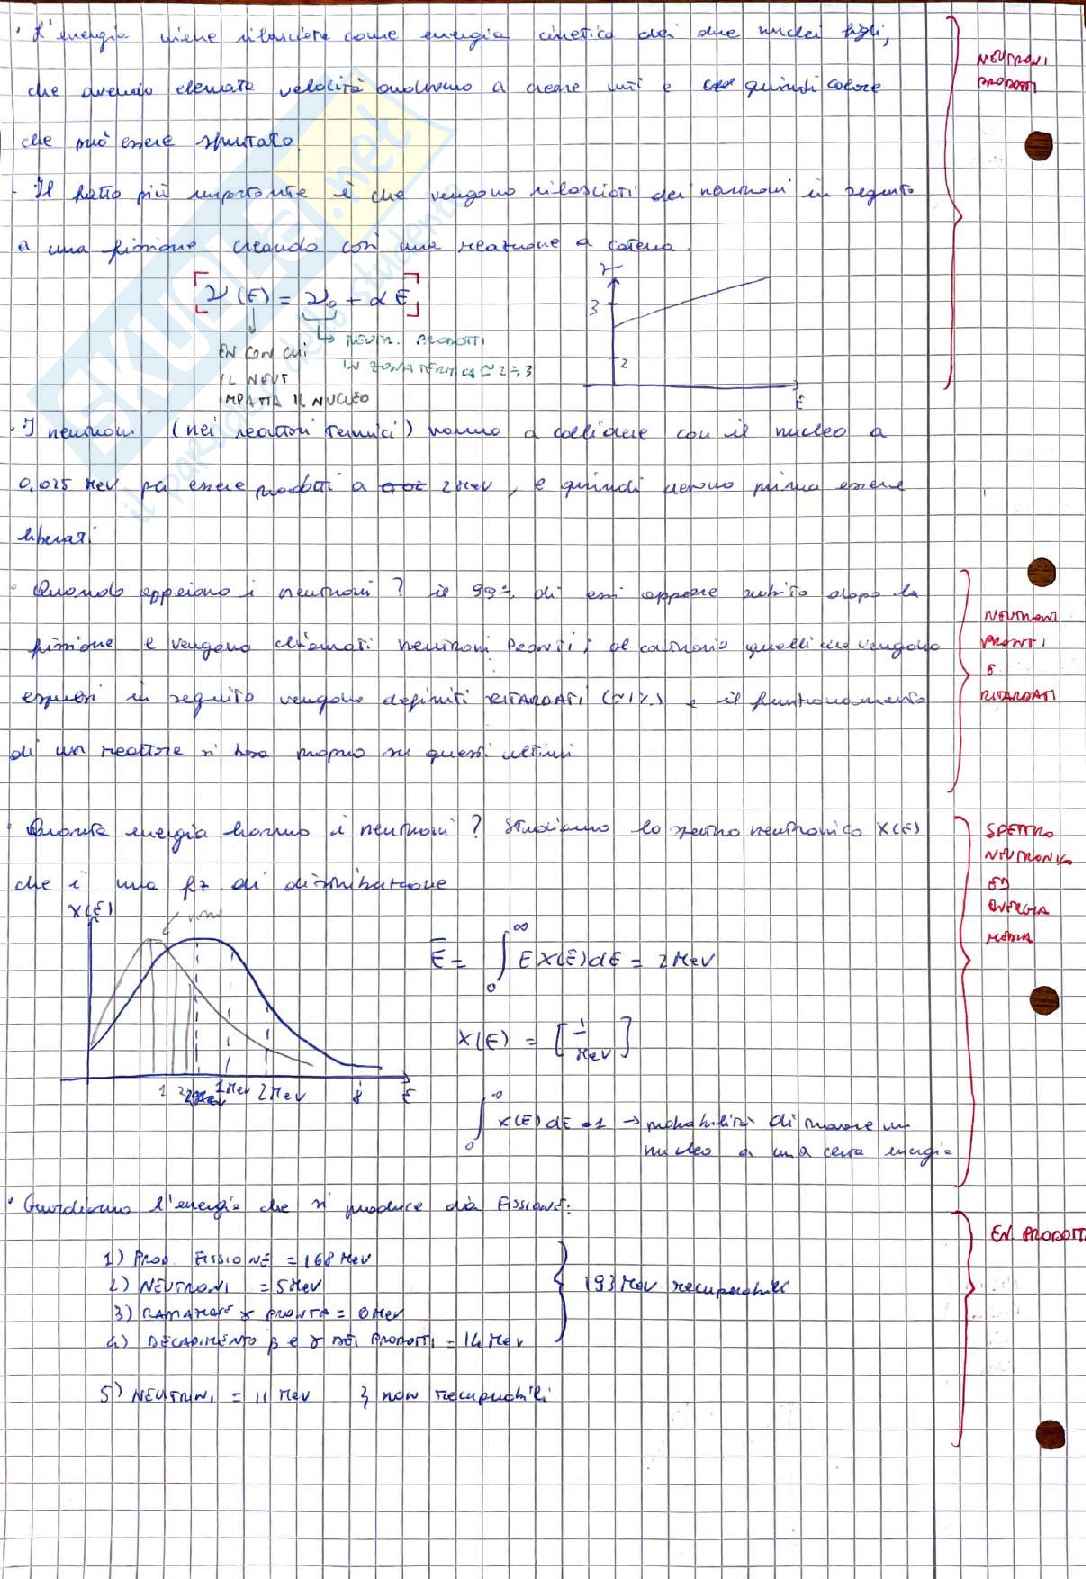 · L'energia viene rilasciata come energia cinetica dei due nuclei figli,
che avendo elevate velocità andranno a creare urti e quindi calore
che può essere sfruttato.
NEUTRONI
PRODOTTI
· Il fatto più importante è che vengono rilasciati dei neutroni in seguito
a una fissione creando così una reazione a catena.
[ν(E) = ν₀ + αE]
EN CON CUI
IL NEUT
IMPATTA IL NUCLEO
NEUTR. PRODOTTI
IN ZONA TERMICA ≃ 2÷3
ν
3
2
E
· I neutroni (nei reattori termici) vanno a collidere con il nucleo a
0,025 MeV per essere prodotti a 2 MeV, e quindi devono prima essere
· Quando appaiono i neutroni? il 99% di essi appare subito dopo la
fissione e vengono chiamati neutroni PRONTI; al contrario quelli che vengono
espulsi in seguito vengono definiti RITARDATI (~1%) e il funzionamento
di un reattore si basa proprio su questi ultimi
NEUTRONI
PRONTI
E
RITARDATI
· Quanta energia hanno i neutroni? Studiamo lo spettro neutronico X(E)
che è una fz di distribuzione
SPETTRO
NEUTRONICO
ED
ENERGIA
MEDIA
X(E)
1
1 MeV
2 MeV
8
E
Ē = ∫₀^∞ E X(E) dE = 2 MeV
X(E) = [1/MeV]
∫₀^∞ X(E) dE = 1 → probabilità di trovare un
nucleo a una certa energia
· Guardiamo l'energia che si produce da FISSIONE:
1) PROD. FISSIONE = 168 MeV
2) NEUTRONI = 5 MeV
3) γ PRONTA = 6 MeV
4) DECADIMENTO β e γ DEI PRODOTTI = 14 MeV
} 193 MeV recuperabili
5) NEUTRINI = 11 MeV } non recuperabili
EN. PRODOTTA
SKUOLA.net